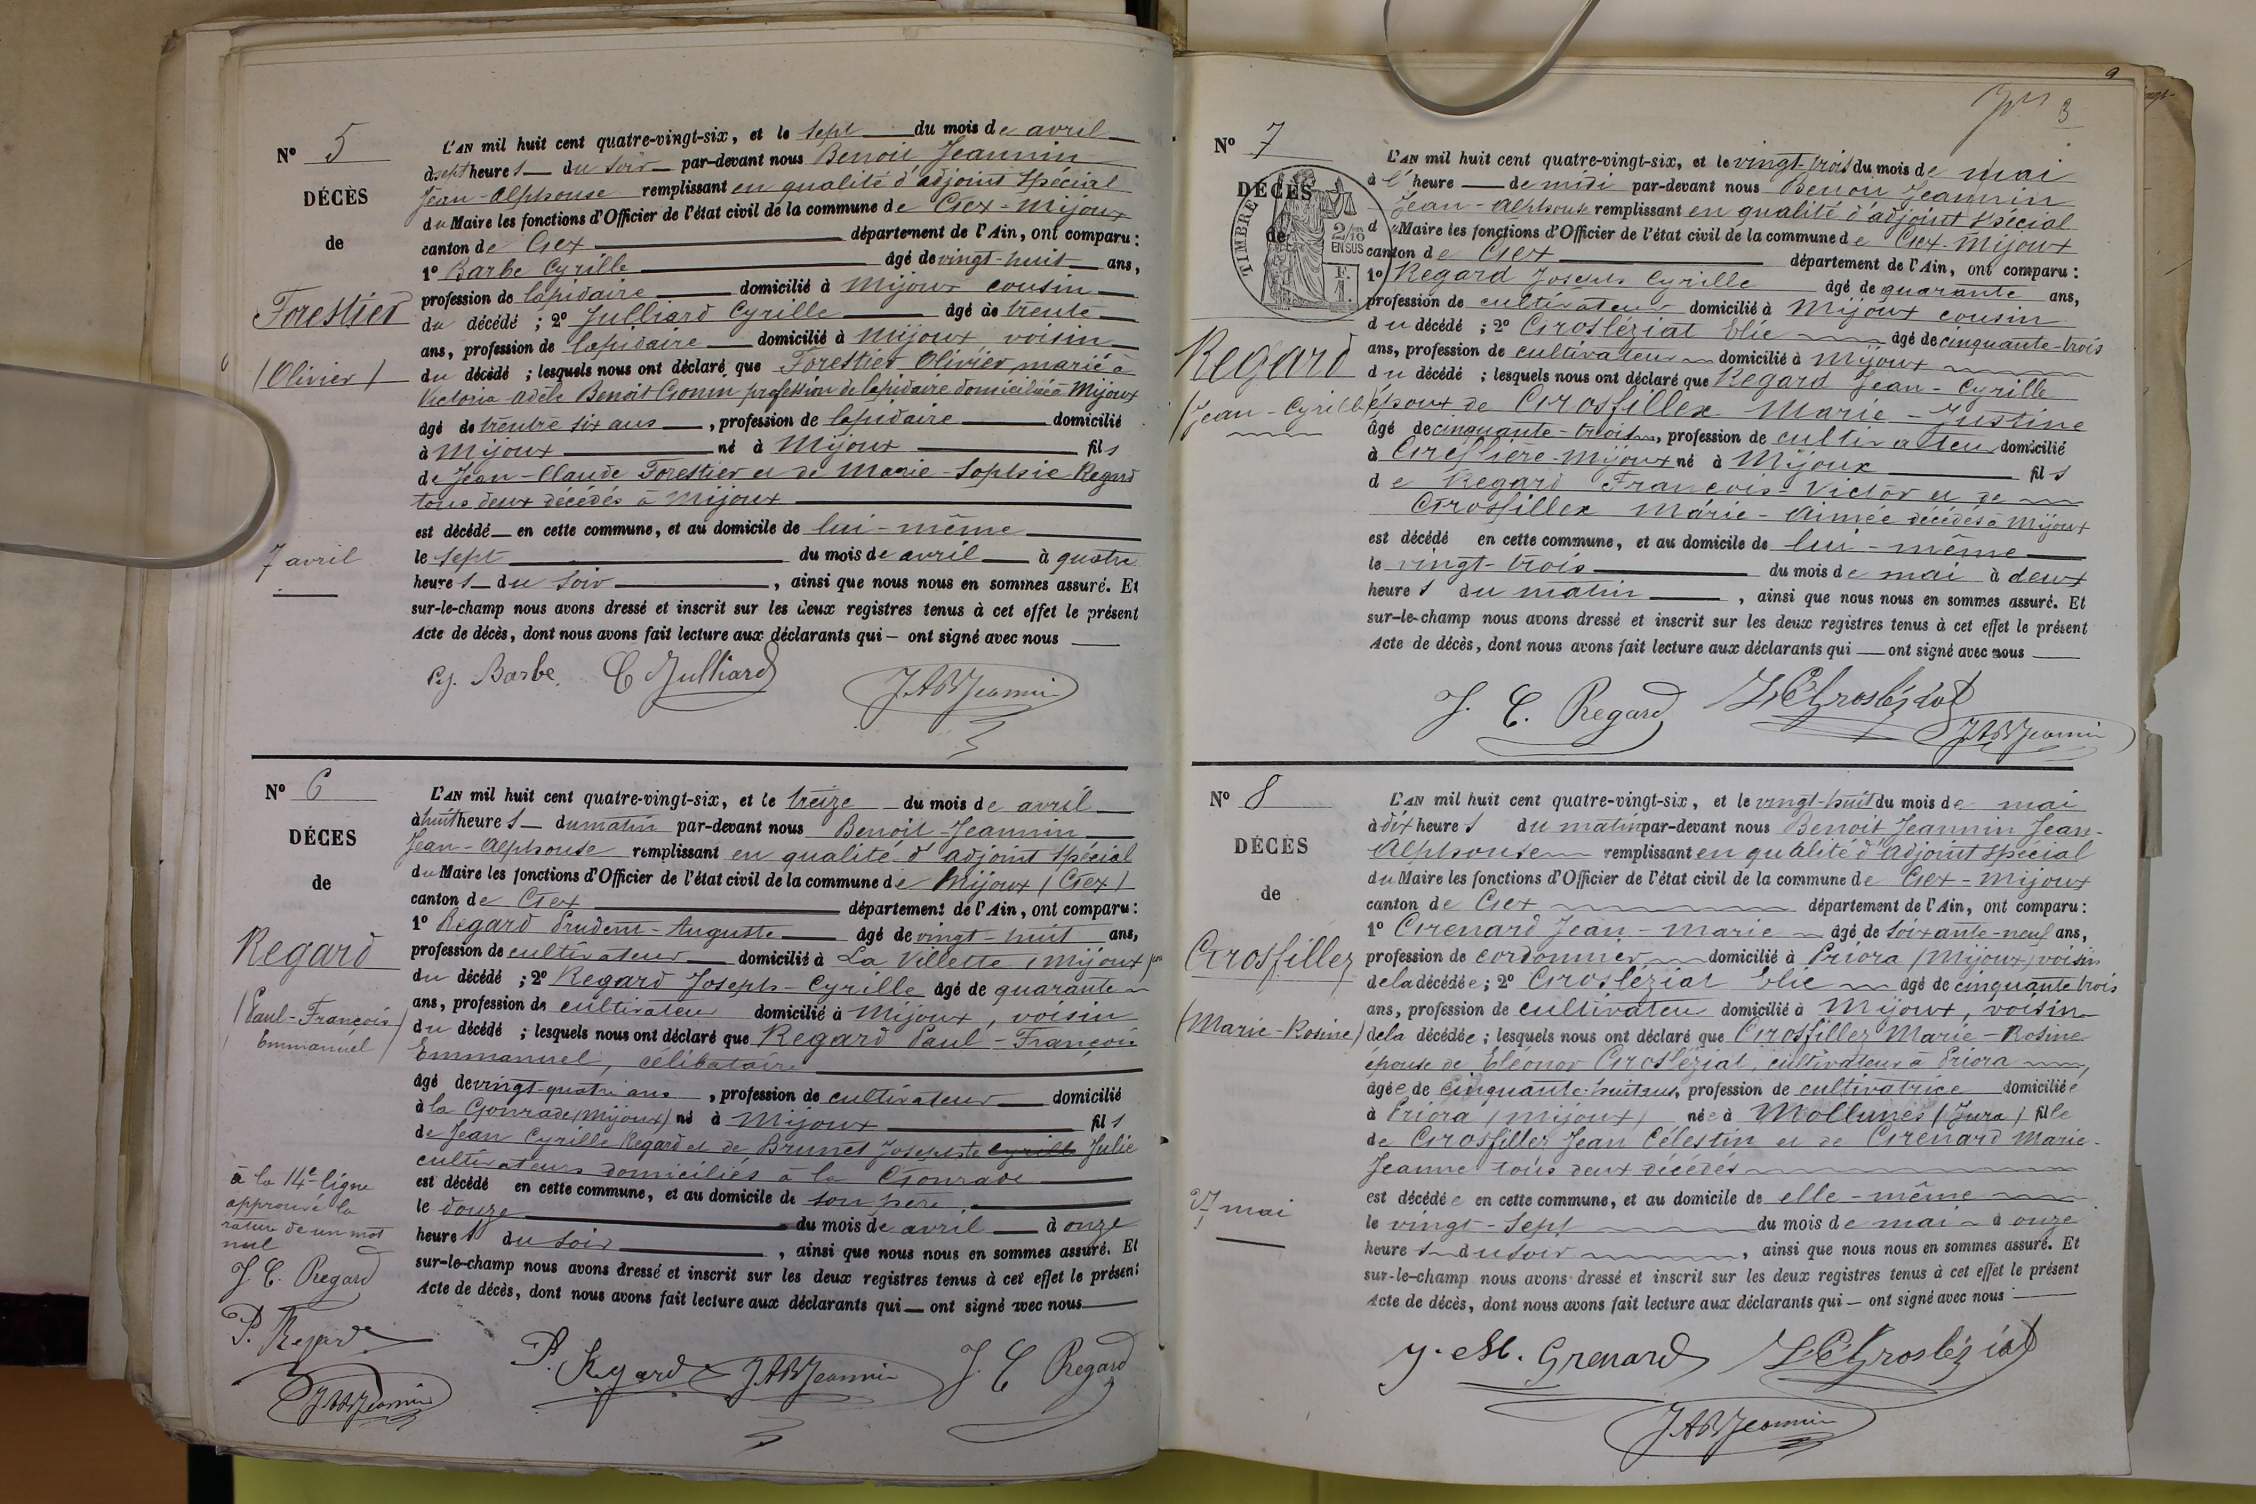 N° 5
DÉCÈS
de
Forestier
(Olivier)
7 avril
L'AN mil huit cent quatre-vingt-six, et le sept du mois de avril
à sept heures du soir par-devant nous Benoit Jeannin
Jean-Alphonse remplissant en qualité d'adjoint spécial
du Maire les fonctions d'Officier de l'état civil de la commune de Gex-Mijoux
canton de Gex département de l'Ain, ont comparu :
1° Barbe Cyrille âgé de vingt-huit ans,
profession de lapidaire domicilié à Mijoux cousin
du décédé ; 2° Julliard Cyrille âgé de trente
ans, profession de lapidaire domicilié à Mijoux, voisin
du décédé ; lesquels nous ont déclaré que Forestier Olivier marié à
Victoria Adèle Benoit Gonin profession de lapidaire domiciliée à Mijoux
âgé de trentre six ans, profession de lapidaire domicilié
à Mijoux né à Mijoux fils
de Jean-Claude Forestier et de Marie-Sophie Regard
tous deux décédés à Mijoux
est décédé en cette commune, et au domicile de lui-même
le sept du mois de avril à quatre
heures du soir, ainsi que nous nous en sommes assuré. Et
sur-le-champ nous avons dressé et inscrit sur les deux registres tenus à cet effet le présent
Acte de décès, dont nous avons fait lecture aux déclarants qui ont signé avec nous
Cy. Barbe. C Julliard JABJeannin
N° 6
DÉCÈS
de
Regard
(Paul-François
Emmanuel)
à la 14e ligne
approuvé la
rature de un mot
nul
J. C. Regard
P. Regard
JABJeannin
L'AN mil huit cent quatre-vingt-six, et le treize du mois de avril
à huit heures du matin par-devant nous Benoit-Jeannin
Jean-Alphonse remplissant en qualité d'adjoint spécial
du Maire les fonctions d'Officier de l'état civil de la commune de Mijoux (Gex)
canton de Gex département de l'Ain, ont comparu :
1° Regard Prudent-Auguste âgé de vingt-huit ans,
profession de cultivateur domicilié à La Villette (Mijoux)
du décédé ; 2° Regard Joseph-Cyrille âgé de quarante
ans, profession de cultivateur domicilié à Mijoux, voisin
du décédé ; lesquels nous ont déclaré que Regard Paul-François
Emmanuel, célibataire
âgé de vingt-quatre ans, profession de cultivateur domicilié
à la Gonrade (Mijoux) né à Mijoux fils
de Jean Cyrille Regard et de Brunet Josephte Cyrille Julie
cultivateurs domiciliés à la Gonrade
est décédé en cette commune, et au domicile de son père
le douze du mois de avril à onze
heures du soir, ainsi que nous nous en sommes assuré. Et
sur-le-champ nous avons dressé et inscrit sur les deux registres tenus à cet effet le présent
Acte de décès, dont nous avons fait lecture aux déclarants qui ont signé avec nous
P. Regard JABJeannin J. C Regard
9
3
N° 7
DÉCÈS
de
TIMBRE
2/10
EN SUS
Regard
(Jean-Cyrille)
L'AN mil huit cent quatre-vingt-six, et le vingt-trois du mois de mai
à l' heure de midi par-devant nous Benoit Jeannin
Jean-Alphonse remplissant en qualité d'adjoint spécial
du Maire les fonctions d'Officier de l'état civil de la commune de Gex-Mijoux
canton de Gex département de l'Ain, ont comparu :
1° Regard Joseph Cyrille âgé de quarante ans,
profession de cultivateur domicilié à Mijoux cousin
du décédé ; 2° Grosléziat Elie âgé de cinquante-trois
ans, profession de cultivateur domicilié à Mijoux
du décédé ; lesquels nous ont déclaré que Regard Jean-Cyrille
époux de Grosfillex Marie-Justine
âgé de cinquante-trois, profession de cultivateu domicilié
à Greslière-Mijoux né à Mijoux fils
de Regard François-Victor et de
Grosfillex Marie-Aimée décédés à Mijoux
est décédé en cette commune, et au domicile de lui-même
le vingt-trois du mois de mai à deux
heures du matin, ainsi que nous nous en sommes assuré. Et
sur-le-champ nous avons dressé et inscrit sur les deux registres tenus à cet effet le présent
Acte de décès, dont nous avons fait lecture aux déclarants qui ont signé avec nous
J. C. Regard Grosléziat JABJeannin
N° 8
DÉCÈS
de
Grosfillez
(Marie-Rosine)
27 mai
L'AN mil huit cent quatre-vingt-six, et le vingt-huit du mois de mai
à dix heures du matin par-devant nous Benoit Jeannin Jean-
Alphonse remplissant en qualité d'adjoint spécial
du Maire les fonctions d'Officier de l'état civil de la commune de Gex-Mijoux
canton de Gex département de l'Ain, ont comparu :
1° Grenard Jean-Marie âgé de soixante-neuf ans,
profession de cordonnier domicilié à Priora (Mijoux) voisin
de la décédée ; 2° Grosléziat Elie âgé de cinquante trois
ans, profession de cultivateu domicilié à Mijoux, voisin
de la décédée ; lesquels nous ont déclaré que Grosfillez Marie-Rosine
épouse de Eléonor Grosléziat, cultivateur à Priora
âgée de cinquante-huit ans, profession de cultivatrice domiciliée
à Priora (Mijoux) née à Mollunes (Jura) fille
de Grosfillez Jean Célestin et de Grenard Marie-
Jeanne tous deux décédés
est décédée en cette commune, et au domicile de elle-même
le vingt-sept du mois de mai à onze
heures du soir, ainsi que nous nous en sommes assuré. Et
sur-le-champ nous avons dressé et inscrit sur les deux registres tenus à cet effet le présent
Acte de décès, dont nous avons fait lecture aux déclarants qui ont signé avec nous
J. M. Grenard Grosléziat
JABJeannin